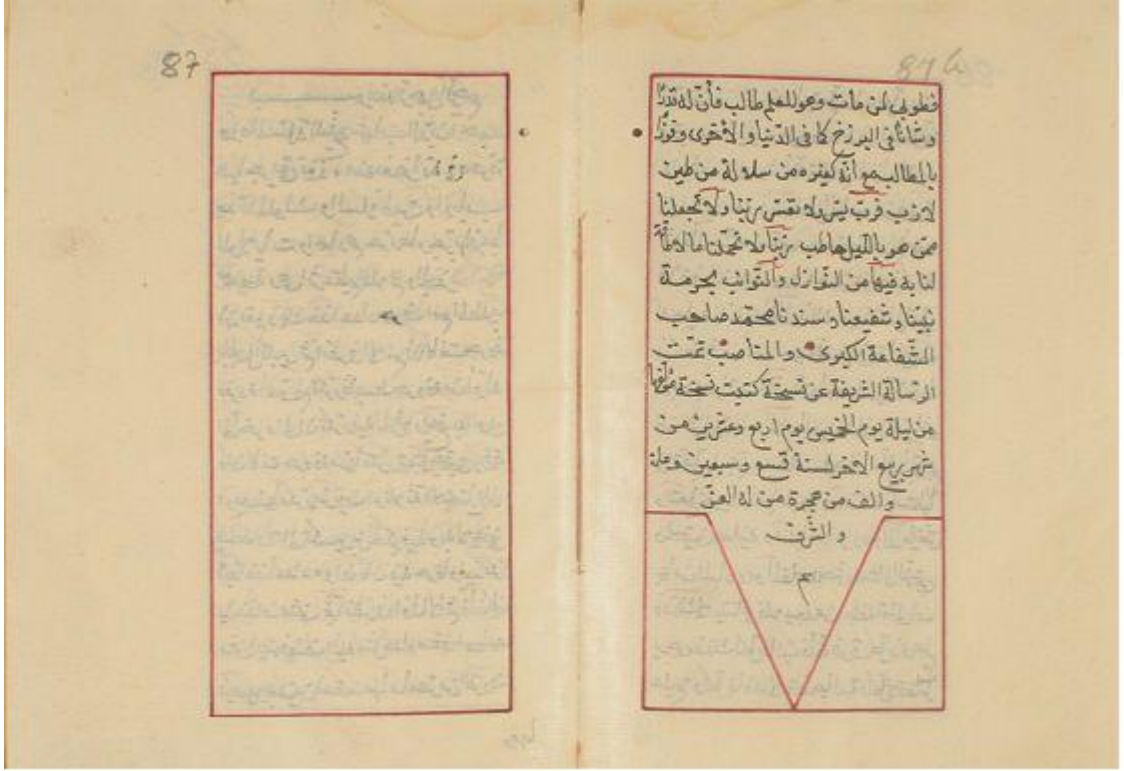 87a
فطوبى لمن مات وهو للعلم طالب فأنّ له قدرًا
وشأنا فى البرزخ كما فى الدّنيا والأخرى وفوزًا
بالمطالب مع أنّه كغيره من سلالة من طين
لازب فربّ يسّر ولا تعسّر ربّنا ولا تجعلنا
ممّن هو بالليل حاطب ربّنا ولا تحمّلنا ما لا طاقة
لنا به فيها من النّوازل والنّوائب بحرمة
نبيّنا وشفيعنا وسندنا محمّد صاحب
الشّفاعة الكبرى والمناصب تمّت
الرّسالة الشّريفة عن نسخة كتبت نسخة مؤلّفها
من ليلة يوم الخميس يوم اربع وعشرين من
شهر ربيع الاخر لسنة تسع وسبعين ومائة
والف من هجرة من له العزّ
والشّرف
م
87